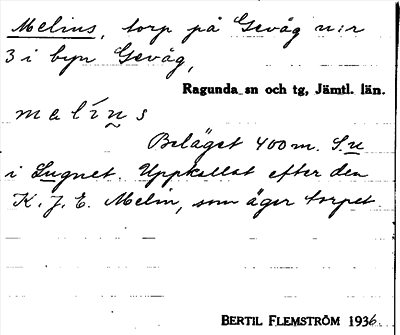 Melins, torp på Gevåg n:r
3 i byn Gevåg,
Ragunda sn och tg, Jämtl. län.
melins
Beläget 400 m. S.
i Lugnet. Uppkallat efter den
K. J. E. Melin, som äger torpet.
BERTIL FLEMSTRÖM 1936.